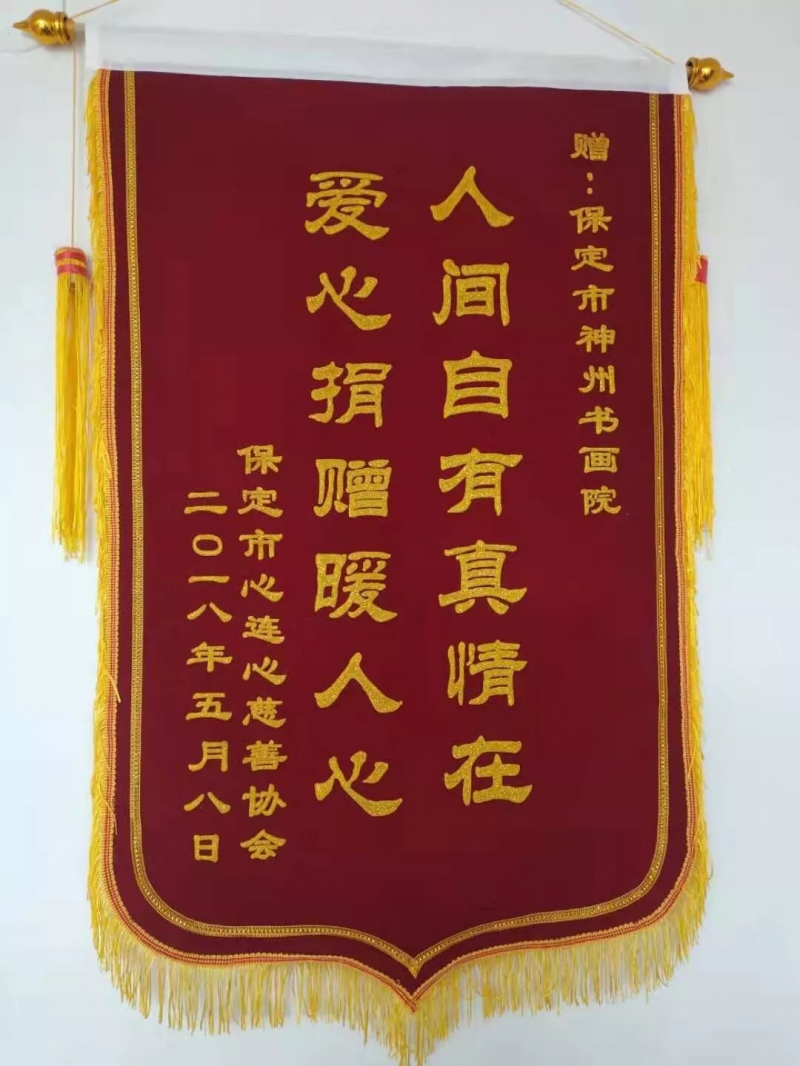 赠：保定市神州书画院
人间自有真情在
爱心捐赠暖人心
保定市心连心慈善协会
二〇一八年五月八日